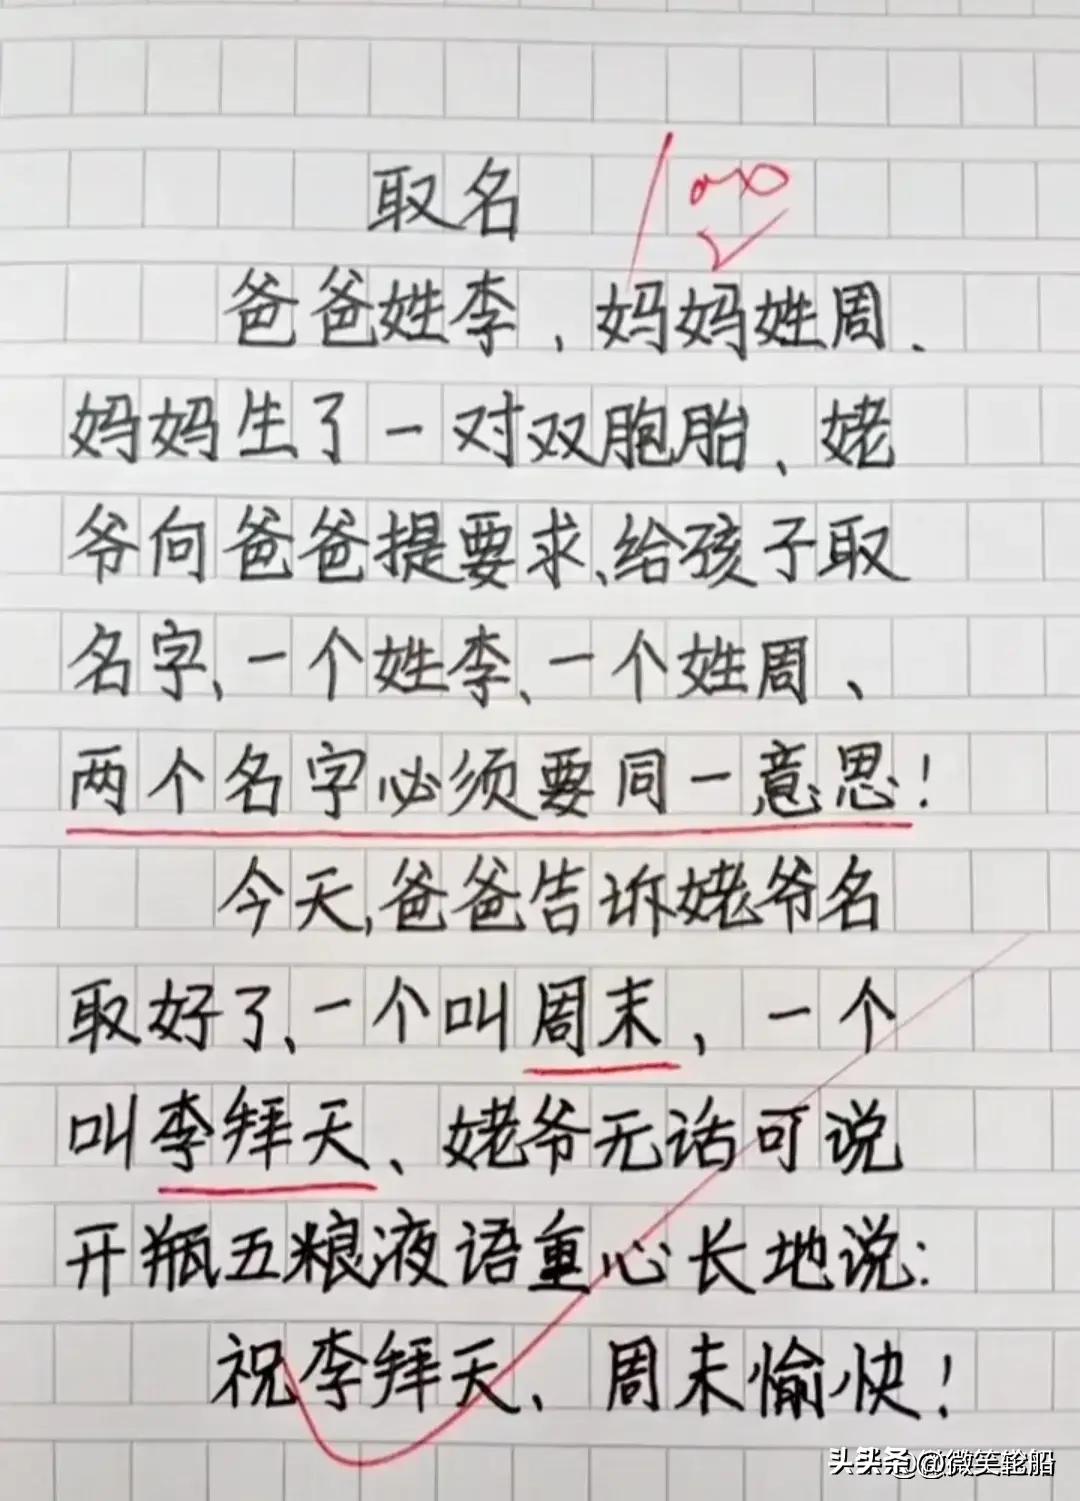 取名
爸爸姓李、妈妈姓周、
妈妈生了一对双胞胎、姥
爷向爸爸提要求、给孩子取
名字、一个姓李、一个姓周、
两个名字必须要同一意思！
今天,爸爸告诉姥爷名
取好了、一个叫周末、一个
叫李拜天、姥爷无话可说
开瓶五粮液语重心长地说:
祝李拜天、周末愉快！
头头条@微笑轮船